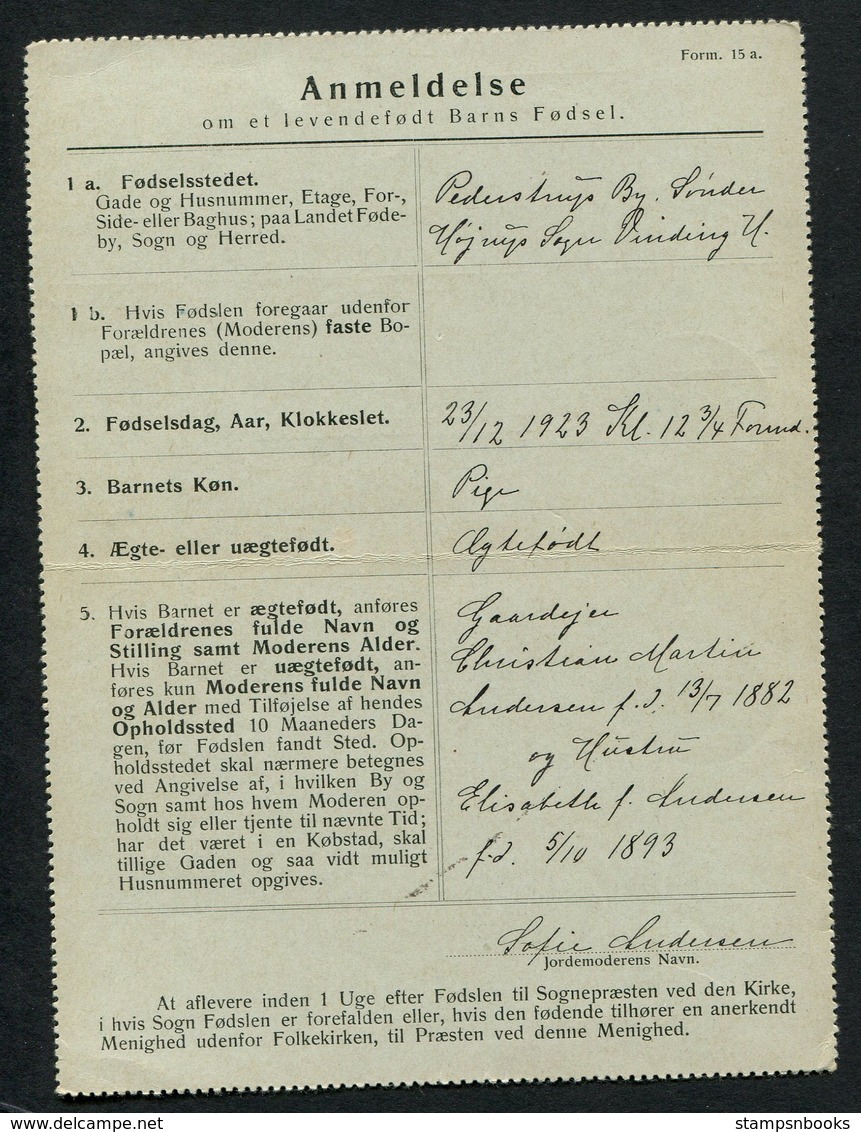 Form. 15 a.
Anmeldelse
om et levendefødt Barns Fødsel.
1 a. Fødselsstedet.
Gade og Husnummer, Etage, For-,
Side- eller Baghus; paa Landet Føde-
by, Sogn og Herred.
Pederstrup By. Sønder
Højrup Sogn Vinding H.
1 b. Hvis Fødslen foregaar udenfor
Forældrenes (Moderens) faste Bo-
pæl, angives denne.
2. Fødselsdag, Aar, Klokkeslet.
23/12 1923 Kl. 12 3/4 Formd.
3. Barnets Køn.
Pige
4. Ægte- eller uægtefødt.
Ægtefødt
5. Hvis Barnet er ægtefødt, anføres
Forældrenes fulde Navn og
Stilling samt Moderens Alder.
Hvis Barnet er uægtefødt, an-
føres kun Moderens fulde Navn
og Alder med Tilføjelse af hendes
Opholdssted 10 Maaneders Da-
gen, før Fødslen fandt Sted. Op-
holdsstedet skal nærmere betegnes
ved Angivelse af, i hvilken By og
Sogn samt hos hvem Moderen op-
holdt sig eller tjente til nævnte Tid;
har det været i en Købstad, skal
tillige Gaden og saa vidt muligt
Husnummeret opgives.
Gaardejer
Christian Martin
Andersen f. d. 13/7 1882
og Hustru
Elisabeth f. Andersen
f. d. 5/10 1893
Sofie Andersen
Jordemoderens Navn.
At aflevere inden 1 Uge efter Fødslen til Sognepræsten ved den Kirke,
i hvis Sogn Fødslen er forefalden eller, hvis den fødende tilhører en anerkendt
Menighed udenfor Folkekirken, til Præsten ved denne Menighed.
stampsnbooks